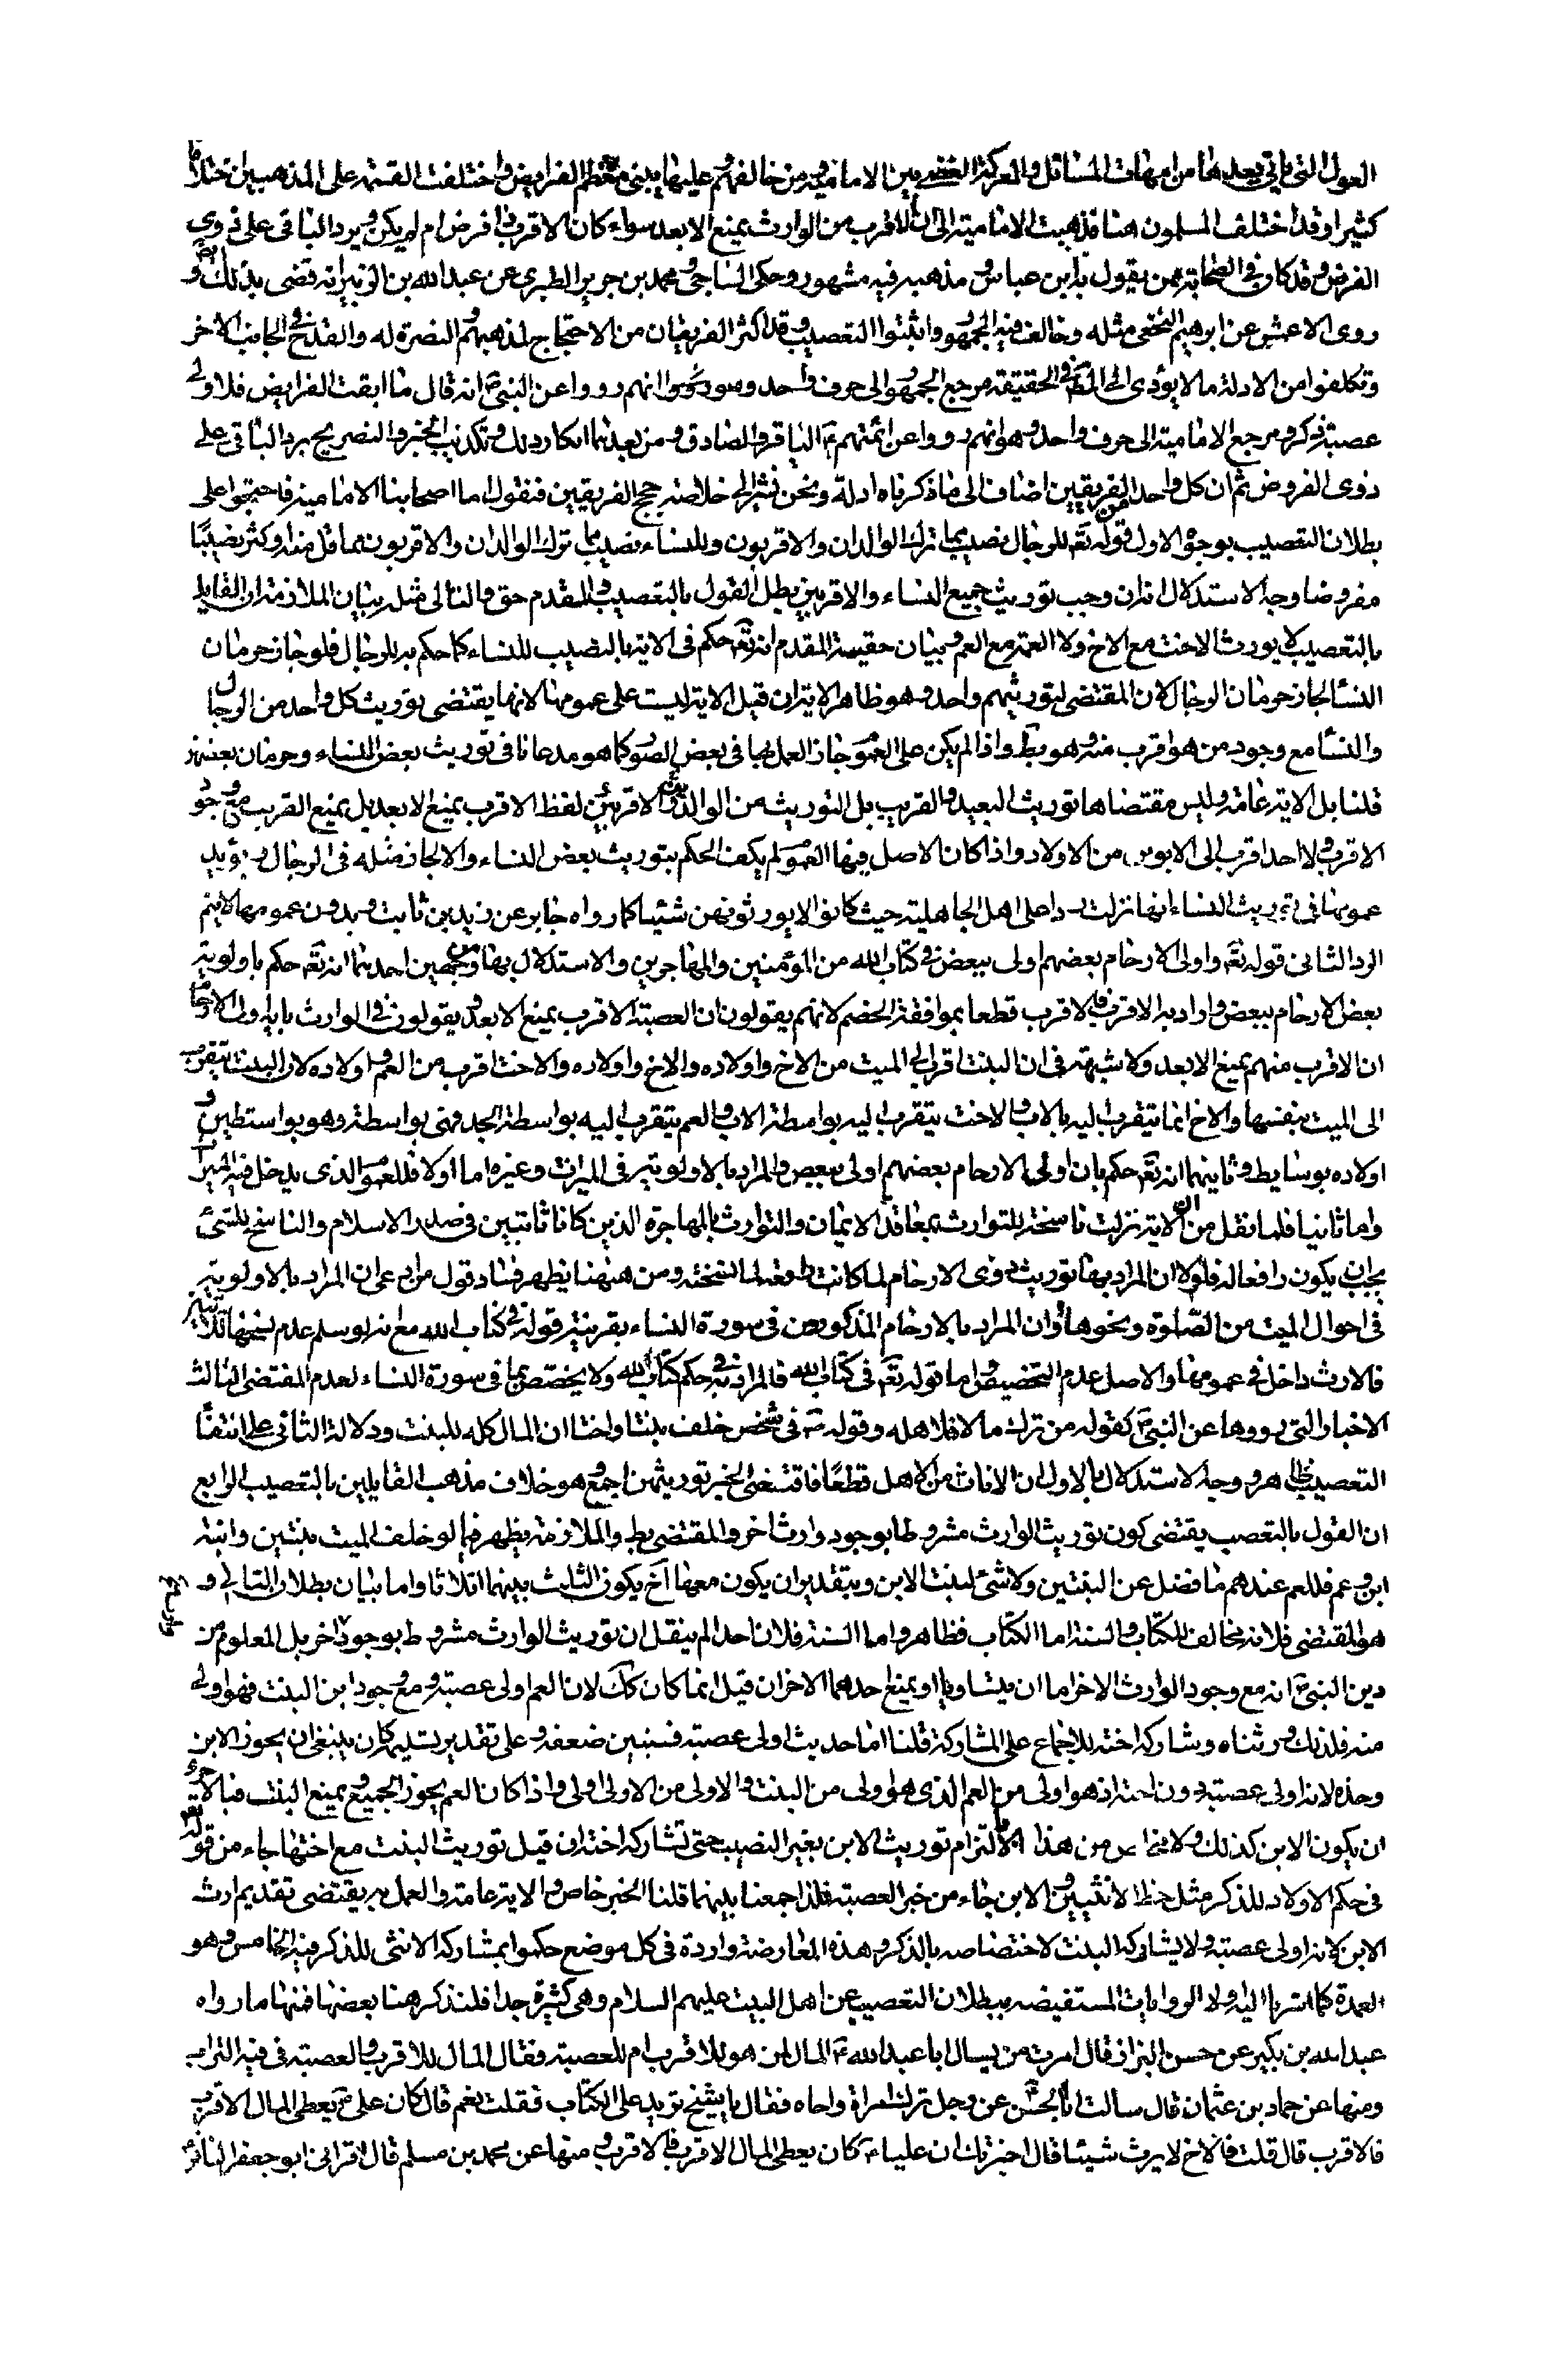 العول التي ياتي بعدها من امهات المسائل والمعركة العظمى بين الامامية ومن خالفهم وعليها يبنى معظم الفرايض واختلفت القسمة على المذهبين اختلافا
كثيرا وقد اختلف المسلمون هنا فذهبت الامامية الى ان الاقرب من الوارث يمنع الابعد سواء كان الاقرب ذا فرض ام لم يكن ويرد الباقي على ذوي
الفرض وقد كان في الصحابة من يقول به ابن عباس ومذهبه فيه مشهور وحكى الساجي ومحمد بن جرير الطبري عن عبد الله بن الزبير انه قضى بذلك ايضا و
روى الاعمش عن ابرهيم النخعي مثله وخالف فيه الجمهور واثبتوا التعصيب وقد اكثر الفريقان من الاحتجاج لمذهبهم والنصرة له والقدح في الجانب الاخر
وتكلفوا من الادلة ما لا يؤدي الى المط وفي الحقيقة مرجع الجمهور الى حرف واحد وهو انهم رووا عن النبي ص انه قال ما ابقت الفرايض فلاولى
عصبة ذكر ومرجع الامامية الى حرف واحد وهو انهم رووا عن ائمتهم ع الباقر والصادق ومن بعدهما انكار ذلك وتكذيب الخبر والتصريح برد الباقي على
ذوي الفروض ثم ان كل واحد من الفريقين اضاف الى ما ذكرناه ادلة ونحن نشير الى خلاصة حجج الفريقين فنقول اما اصحابنا الامامية فاحتجوا على
بطلان التعصيب بوجوه الاول قوله تع للرجال نصيب مما ترك الوالدان والاقربون وللنساء نصيب مما ترك الوالدان والاقربون مما قل منه او كثر نصيبا
مفروضا وجه الاستدلال انه ان وجب توريث جميع النساء والاقربين بطل القول بالتعصيب والمقدم حق والتالي مثله بيان الملازمة ان القايل
بالتعصيب لا يورث الاخت مع الاخ ولا العمة مع العم وبيان حقيقة المقدم انه تع حكم في الاية بالنصيب للنساء كما حكم به للرجال فلو جاز حرمان
النساء لجاز حرمان الرجال لان المقتضي لتوريثهم واحد وهو ظاهر الاية ان قيل الاية ليست على عمومها لانها يقتضي توريث كل واحد من الرجال
والنساء مع وجود من هو اقرب منه وهو بط واذا لم يكن على العموم جاز العمل بها في بعض الصور كما هو مدعانا في توريث بعض النساء وحرمان بعضهن
قلنا بل الاية عامة وليس مقتضاها توريث البعيد والقريب بل التوريث من الوالدين والاقربين لفظ الاقرب يمنع الابعد بل يمنع القريب مع وجود
الاقرب ولا احد اقرب الى الابوين من الاولاد واذا كان الاصل فيها العموم لم يكف الحكم بتوريث بعض النساء والا لجاز مثله في الرجال ويؤيد
عمومها في توريث النساء انها نزلت ردا على اهل الجاهلية حيث كانوا لا يورثونهن شيئا كما رواه جابر عن زيد بن ثابت وبدون عمومها لا يتم
الرد الثاني قوله تع واولى الارحام بعضهم اولى ببعض في كتاب الله من المؤمنين والمهاجرين والاستدلال بها من وجهين احدهما انه تع حكم باولوية
بعض الارحام ببعض واراد به الاقرب فالاقرب قطعا بموافقة الخصم لانهم يقولون ان العصبة الاقرب يمنع الابعد ويقولون في الوارث باية اولى الارحام
ان الاقرب منهم يمنع الابعد ولا شبهة في ان البنت اقرب الى الميت من الاخ واولاده والاخ واولاده والاخت اقرب من العم واولاده لان البنت يتقرب
الى الميت بنفسها والاخ انما يتقرب اليه بالاب والاخت يتقرب اليه بواسطة الاب والعم يتقرب اليه بواسطة الجد فهى بواسطة وهو بواسطتين و
اولاده بوسايط وثانيهما انه تع حكم بان اولى الارحام بعضهم اولى ببعض والمراد بالاولوية في الميراث وغيره اما اولا فللعموم الذي يدخل فيه الميراث
واما ثانيا فلما نقل من ان الاية نزلت ناسخة للتوارث بمعاقدة الايمان والتوارث بالمهاجرة الذين كانا ثابتين في صدر الاسلام والناسخ للشئ
يجب ان يكون رافعا له فلولا ان المراد بها توريث ذوي الارحام لما كانت رافعة لما نسخته ومن ههنا يظهر فساد قول من ادعى ان المراد بالاولوية
في احوال الميت من الصلوة ونحوها او ان المراد بالارحام المذكورين في سورة النساء بقرينة قوله في كتاب الله مع انه لو سلم عدم نسخها لتلك
فالارث داخل في عمومها والاصل عدم التخصيص واما قوله تع في كتاب الله فالمراد به في حكم كتاب الله ولا يختص بما في سورة النساء لعدم المقتضي الثالث
الاخبار التي رووها عن النبي ص كقوله من ترك مالا فلاهله وقوله ص في شخص خلف بنتا واختا ان المال كله للبنت ودلالة الثاني على انتفاء
التعصيب ظاهرة ووجه الاستدلال بالاول ان الاناث من الاهل قطعا فاقتضى الخبر توريثهن اجمع وهو خلاف مذهب القايلين بالتعصيب الرابع
ان القول بالتعصب يقتضي كون توريث الوارث مشروطا بوجود وارث اخر والمقتضى بط والملازمة يظهر فيما لو خلف الميت بنتين وابنة
ابن وعم فللعم عندهم ما فضل عن البنتين ولا شئ لبنت الابن وبتقدير ان يكون معها اخ يكون الثلث بينهما اثلاثا واما بيان بطلان التالي و
هو المقتضى فلانه مخالف للكتاب والسنة اما الكتاب فظاهر واما السنة فلان احدا لم ينقل ان توريث الوارث مشروط بوجود اخر بل المعلوم من
دين النبي ص انه مع وجود الوارث الاخر اما ان يتساويا او يمنع احدهما الاخر ان قيل انما كان كك لان العم اولى عصبة ومع وجود ابن البنت فهو اولى
منه فلذلك ورثناه وشاركه اخته للاجماع على المشاركة قلنا اما حديث اولى عصبة فسنبين ضعفه وعلى تقدير تسليمه كان ينبغي ان يحوز الابن
وحده لانه اولى عصبة دون اخته اذ هو اولى من العم الذي هو اولى من البنت والاولى من الاولى اولى واذا كان العم يحوز الجميع ويمنع البنت فبالاحرى
ان يكون الابن كذلك ولا من هذا الا بالتزام توريث الابن بغير النصيب حتى تشاركه اخته ان قيل توريث البنت مع اختها جاء من قوله تع
في حكم الاولاد للذكر مثل حظ الانثيين والابن جاء من خبر العصبة فلذا جمعنا بينهما قلنا الخبر خاص والاية عامة والعمل به يقتضي تقديم ارث
الابن لانه اولى عصبة ولا يشاركه البنت لاختصاصه بالذكر وهذه المعارضة واردة في كل موضع حكموا بمشاركة الانثى للذكر فيه الخامس وهو
العمدة كما اشرنا اليه اولا الروايات المستفيضه ببطلان التعصيب عن اهل البيت عليهم السلام وهي كثيرة جدا فلنذكر هنا بعضها فمنها ما رواه
عبد الله بن بكير عن حسن البزاز قال امرت من يسال ابا عبد الله ع المال لمن هو للاقرب ام للعصبة فقال المال للاقرب والعصبة في فيه التراب
ومنها عن حماد بن عثمان قال سالت ابا الحسن ع عن رجل ترك امراة واخاه فقال يا شيخ تريد على الكتاب فقلت نعم قال كان علي ع يعطي المال الاقرب
فالاقرب قال قلت فالاخ لا يرث شيئا قال اخبرتك ان عليا ع كان يعطي المال الاقرب فالاقرب ومنها عن محمد بن مسلم قال اقراني ابو جعفر الباقر ع